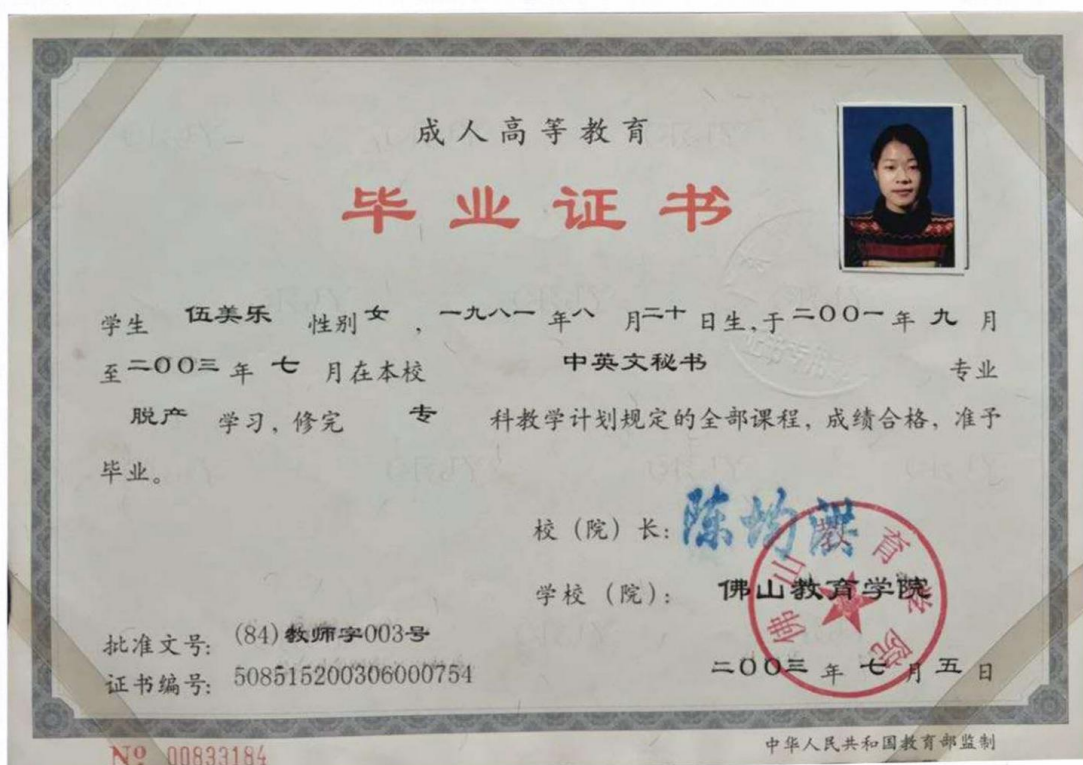 成人高等教育
毕业证书
学生 伍美乐 性别 女 ，一九八一 年 八 月 二十 日生，于 二OO一 年 九 月
至 二OO三 年 七 月在本校 中英文秘书 专业
脱产 学习，修完 专 科教学计划规定的全部课程，成绩合格，准予
毕业。
校（院）长：陈均洪
学校（院）：佛山教育学院
佛山教育学院
批准文号：(84)教师字003号
证书编号：508515200306000754
二OO三 年 七 月 五 日
№ 00833184
中华人民共和国教育部监制